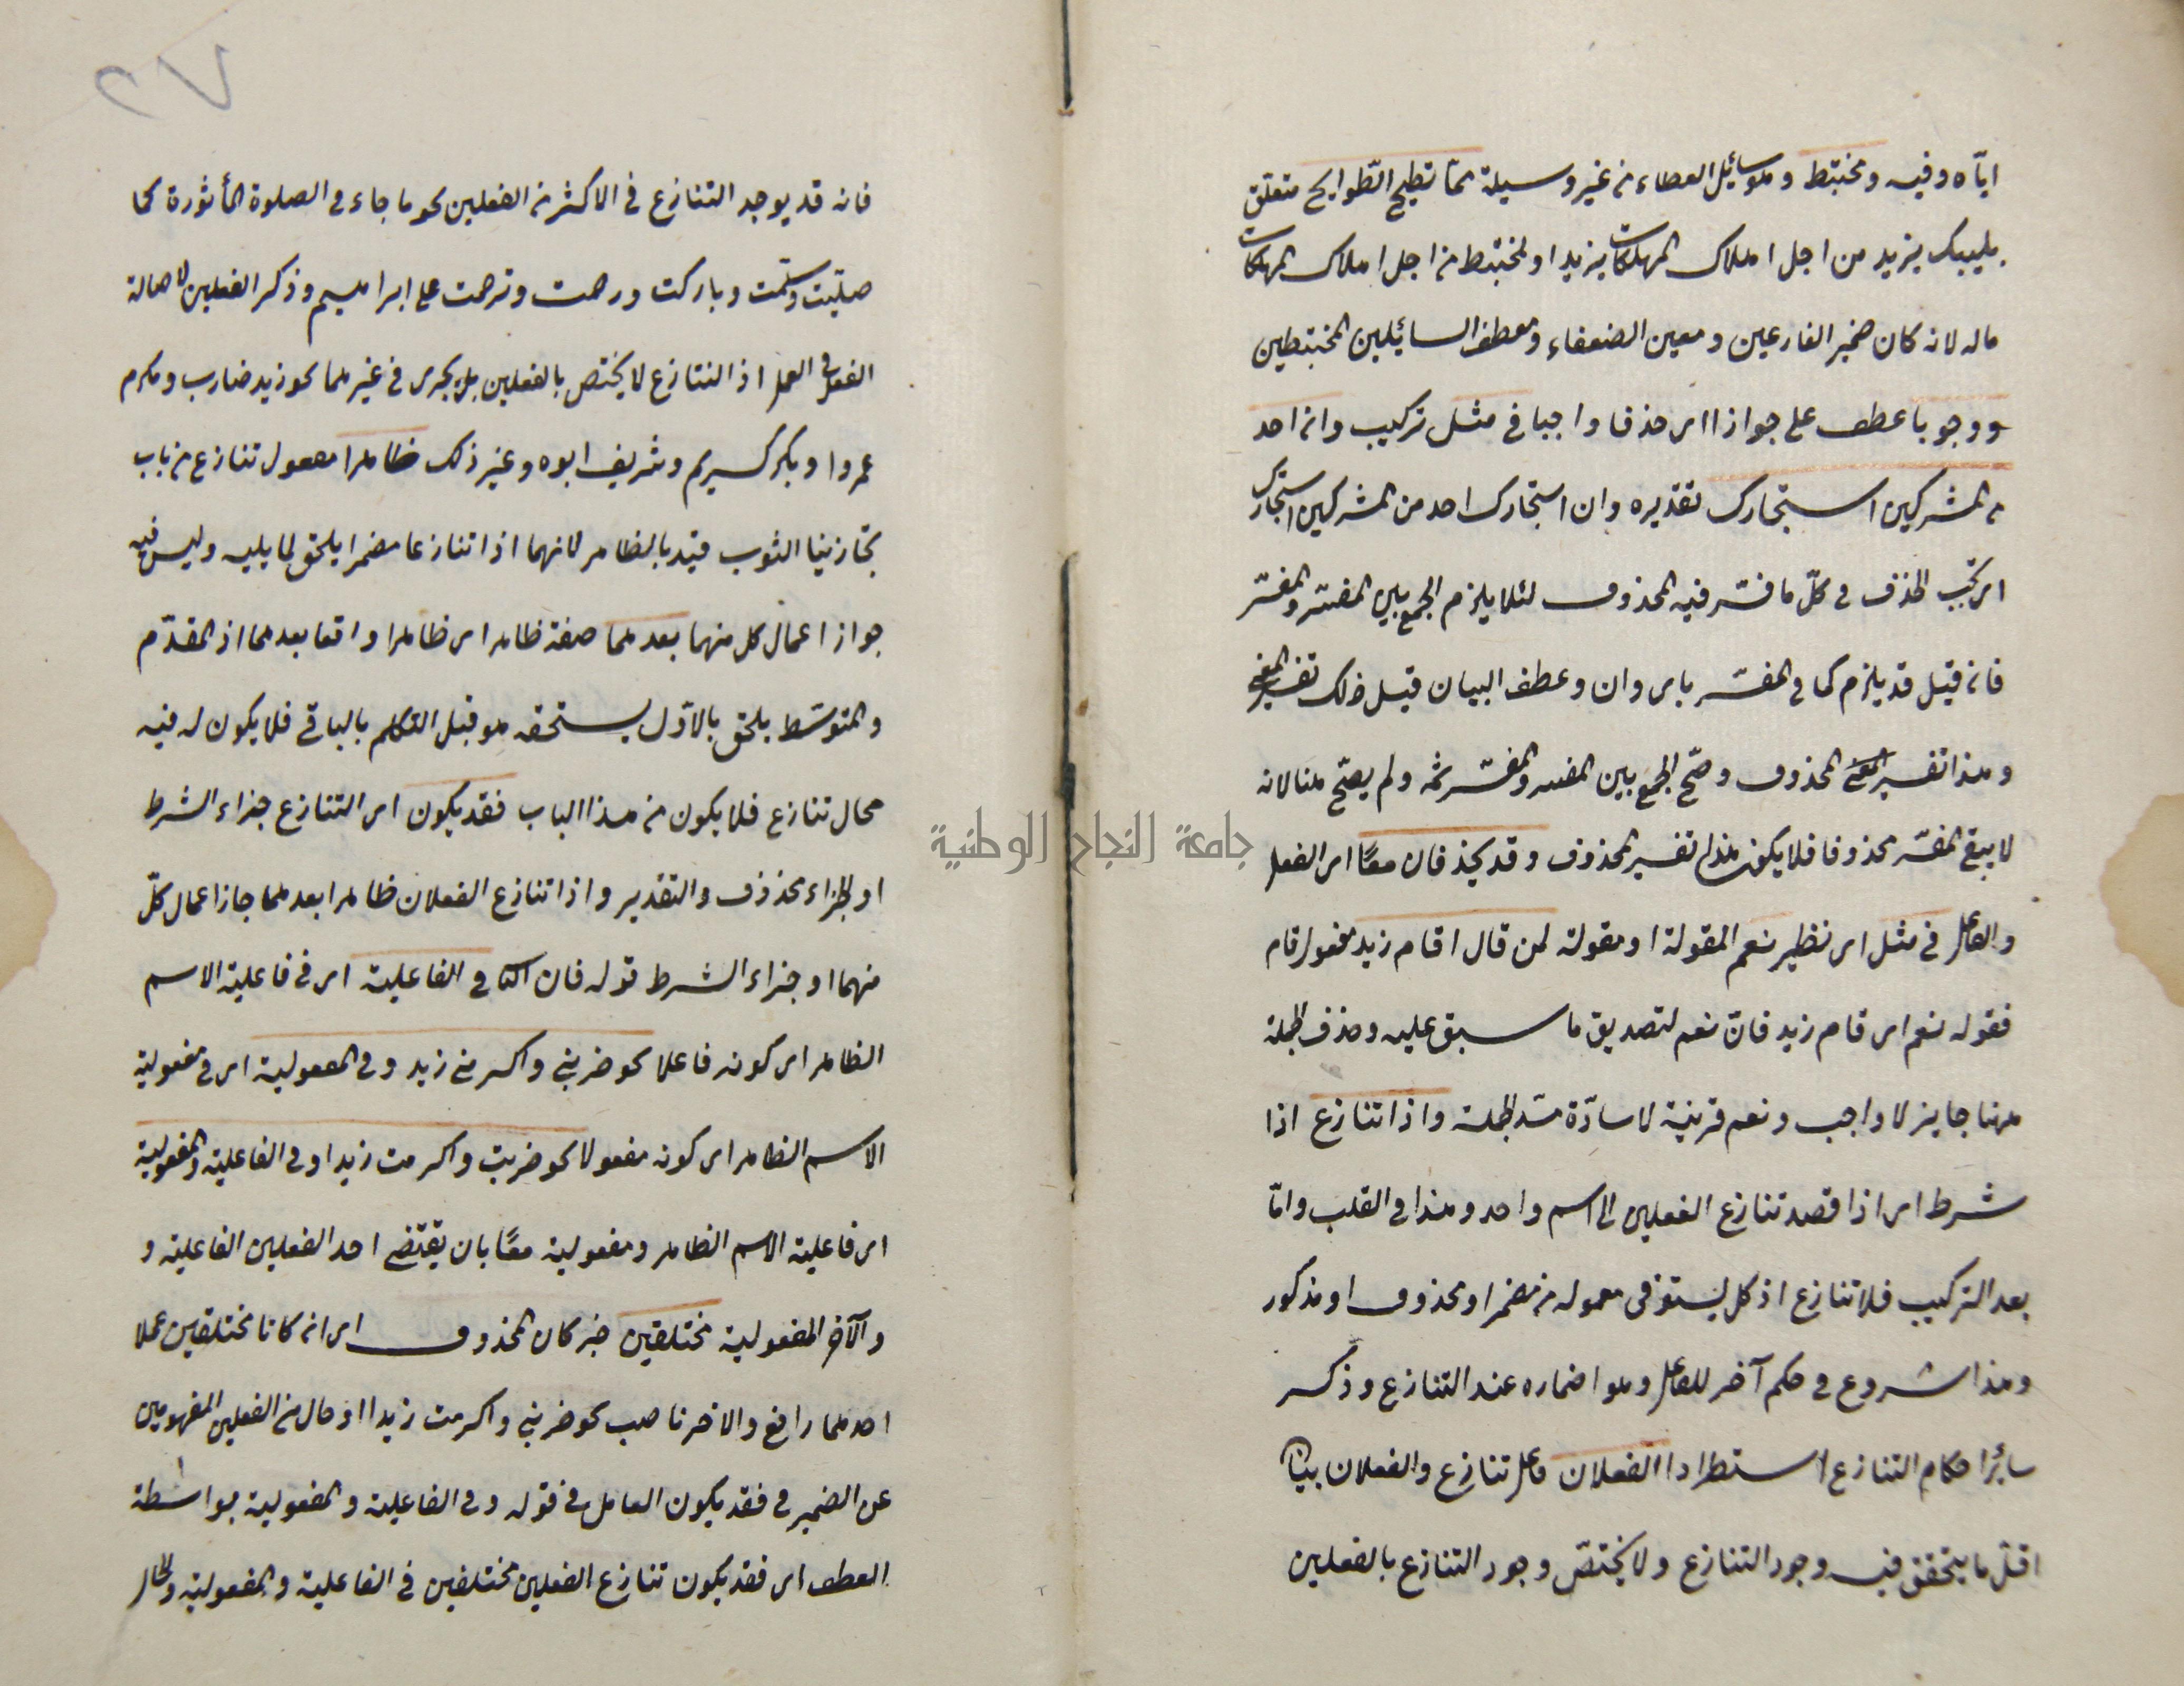 اياه وفيه ومختبط وهو سائل العطاء من غير وسيلة مما تطيح الطوايح متعلق
بليبك يزيد من اجل اهلاك المهلكات يزيد او لمختبط من اجل اهلاك المهلكات
ماله لانه كان ضمير الفارعين ومعين الضعفاء ومعطف السائلين المختبطين
ووجوبا عطف على جوازا اى حذفا واجبا فى مثل تركيب وان احد
من المشركين استجارك تقديره وان استجارك احد من المشركين استجارك
اى يجب الحذف فى كلّ ما فسّر فيه المحذوف لئلا يلزم الجمع بين المفسَّر والمفسِّر
فان قيل قد يلزم كما فى المفسّر باى وان وعطف البيان قيل ذلك تفسير المعنى
وهذا تفسير المحذوف وصحّ الجمع بين المفسر والمفسّر ثمه ولم يصحّ هنا لانه
لا يبقى المفسّر محذوفا فلا يكون هذا تفسير المحذوف وقد يحذفان معًا اى الفعل
والفاعل فى مثل اى نظير نعم المقولة او مقولة لمن قال اقام زيد مفعول قام
فقوله نعم اى قام زيد فانّ نعم لتصديق ما سبق عليه وحذف الجملة
ههنا جايز لا واجب ونعم قرينة لا سادّة مسدّ الجملة واذا تنازع اذا
شرط اى اذا قصد تنازع الفعلين الى اسم واحد وهذا فى القلب وامّا
بعد التركيب فلا تنازع اذ كل يستوفى معموله من مضمر او محذوف او مذكور
وهذا شروع فى حكم آخر للفاعل وهو اضماره عند التنازع وذكر
سائر احكام التنازع استطرادا الفعلان فاعل تنازع والفعلان بيان
اقلّ ما يتحقق فيه وجود التنازع ولا يختصّ وجود التنازع بالفعلين
٧٢
فانه قد يوجد التنازع فى الاكثر من الفعلين نحو ما جاء فى الصلوة المأثورة كما
صليت وسلّمت وباركت ورحمت وترحمت على ابراهيم وذكر الفعلين لاصالة
الفعل فى العمل اذ التنازع لا يختص بالفعلين بل يجرى فى غيرهما نحو زيد ضارب ومكرم
عمروا وبكر كريم وشريف ابوه وغير ذلك ظاهرا مفعول تنازع من باب
تجازينا الثوب قيد بالظاهر لانهما اذا تنازعا مضمرا يلحق لما يليه وليس فيه
جواز اعمال كل منهما بعدهما صفة ظاهرا اى ظاهرا واقعا بعدهما اذ المقدّم
والمتوسّط يلحق بالاوّل يستحقه هو قبل التكلم بالباقى فلا يكون له فيه
محال تنازع فلا يكون من هذا الباب فقد يكون اى التنازع جزاء الشرط
او الجزاء محذوف والتقدير واذا تنازع الفعلان ظاهرا بعدهما جاز اعمال كلّ
منهما او جزاء الشرط قوله فان فى الفاعلية اى فى فاعلية الاسم
الظاهر اى كونه فاعلا نحو ضربنى واكرمنى زيد وفى المفعولية اى فى مفعولية
الاسم الظاهر اى كونه مفعولا نحو ضربت واكرمت زيدا وفى الفاعلية والمفعولية
اى فاعلية الاسم الظاهر ومفعولية معًا بان يقتضى احد الفعلين الفاعلية و
والآخر المفعولية مختلفين خبر كان المحذوف اى انه كانا مختلفين عملا
احدهما رافع والاخر ناصب نحو ضربنى واكرمت زيدا او حال من الفعلين المفهومين
عن الضمير فى فقد يكون العامل فى قوله وفى الفاعلية والمفعولية بواسطة
العطف اى فقد يكون تنازع الفعلين مختلفين فى الفاعلية والمفعولية والحال
جامعة النجاح الوطنية